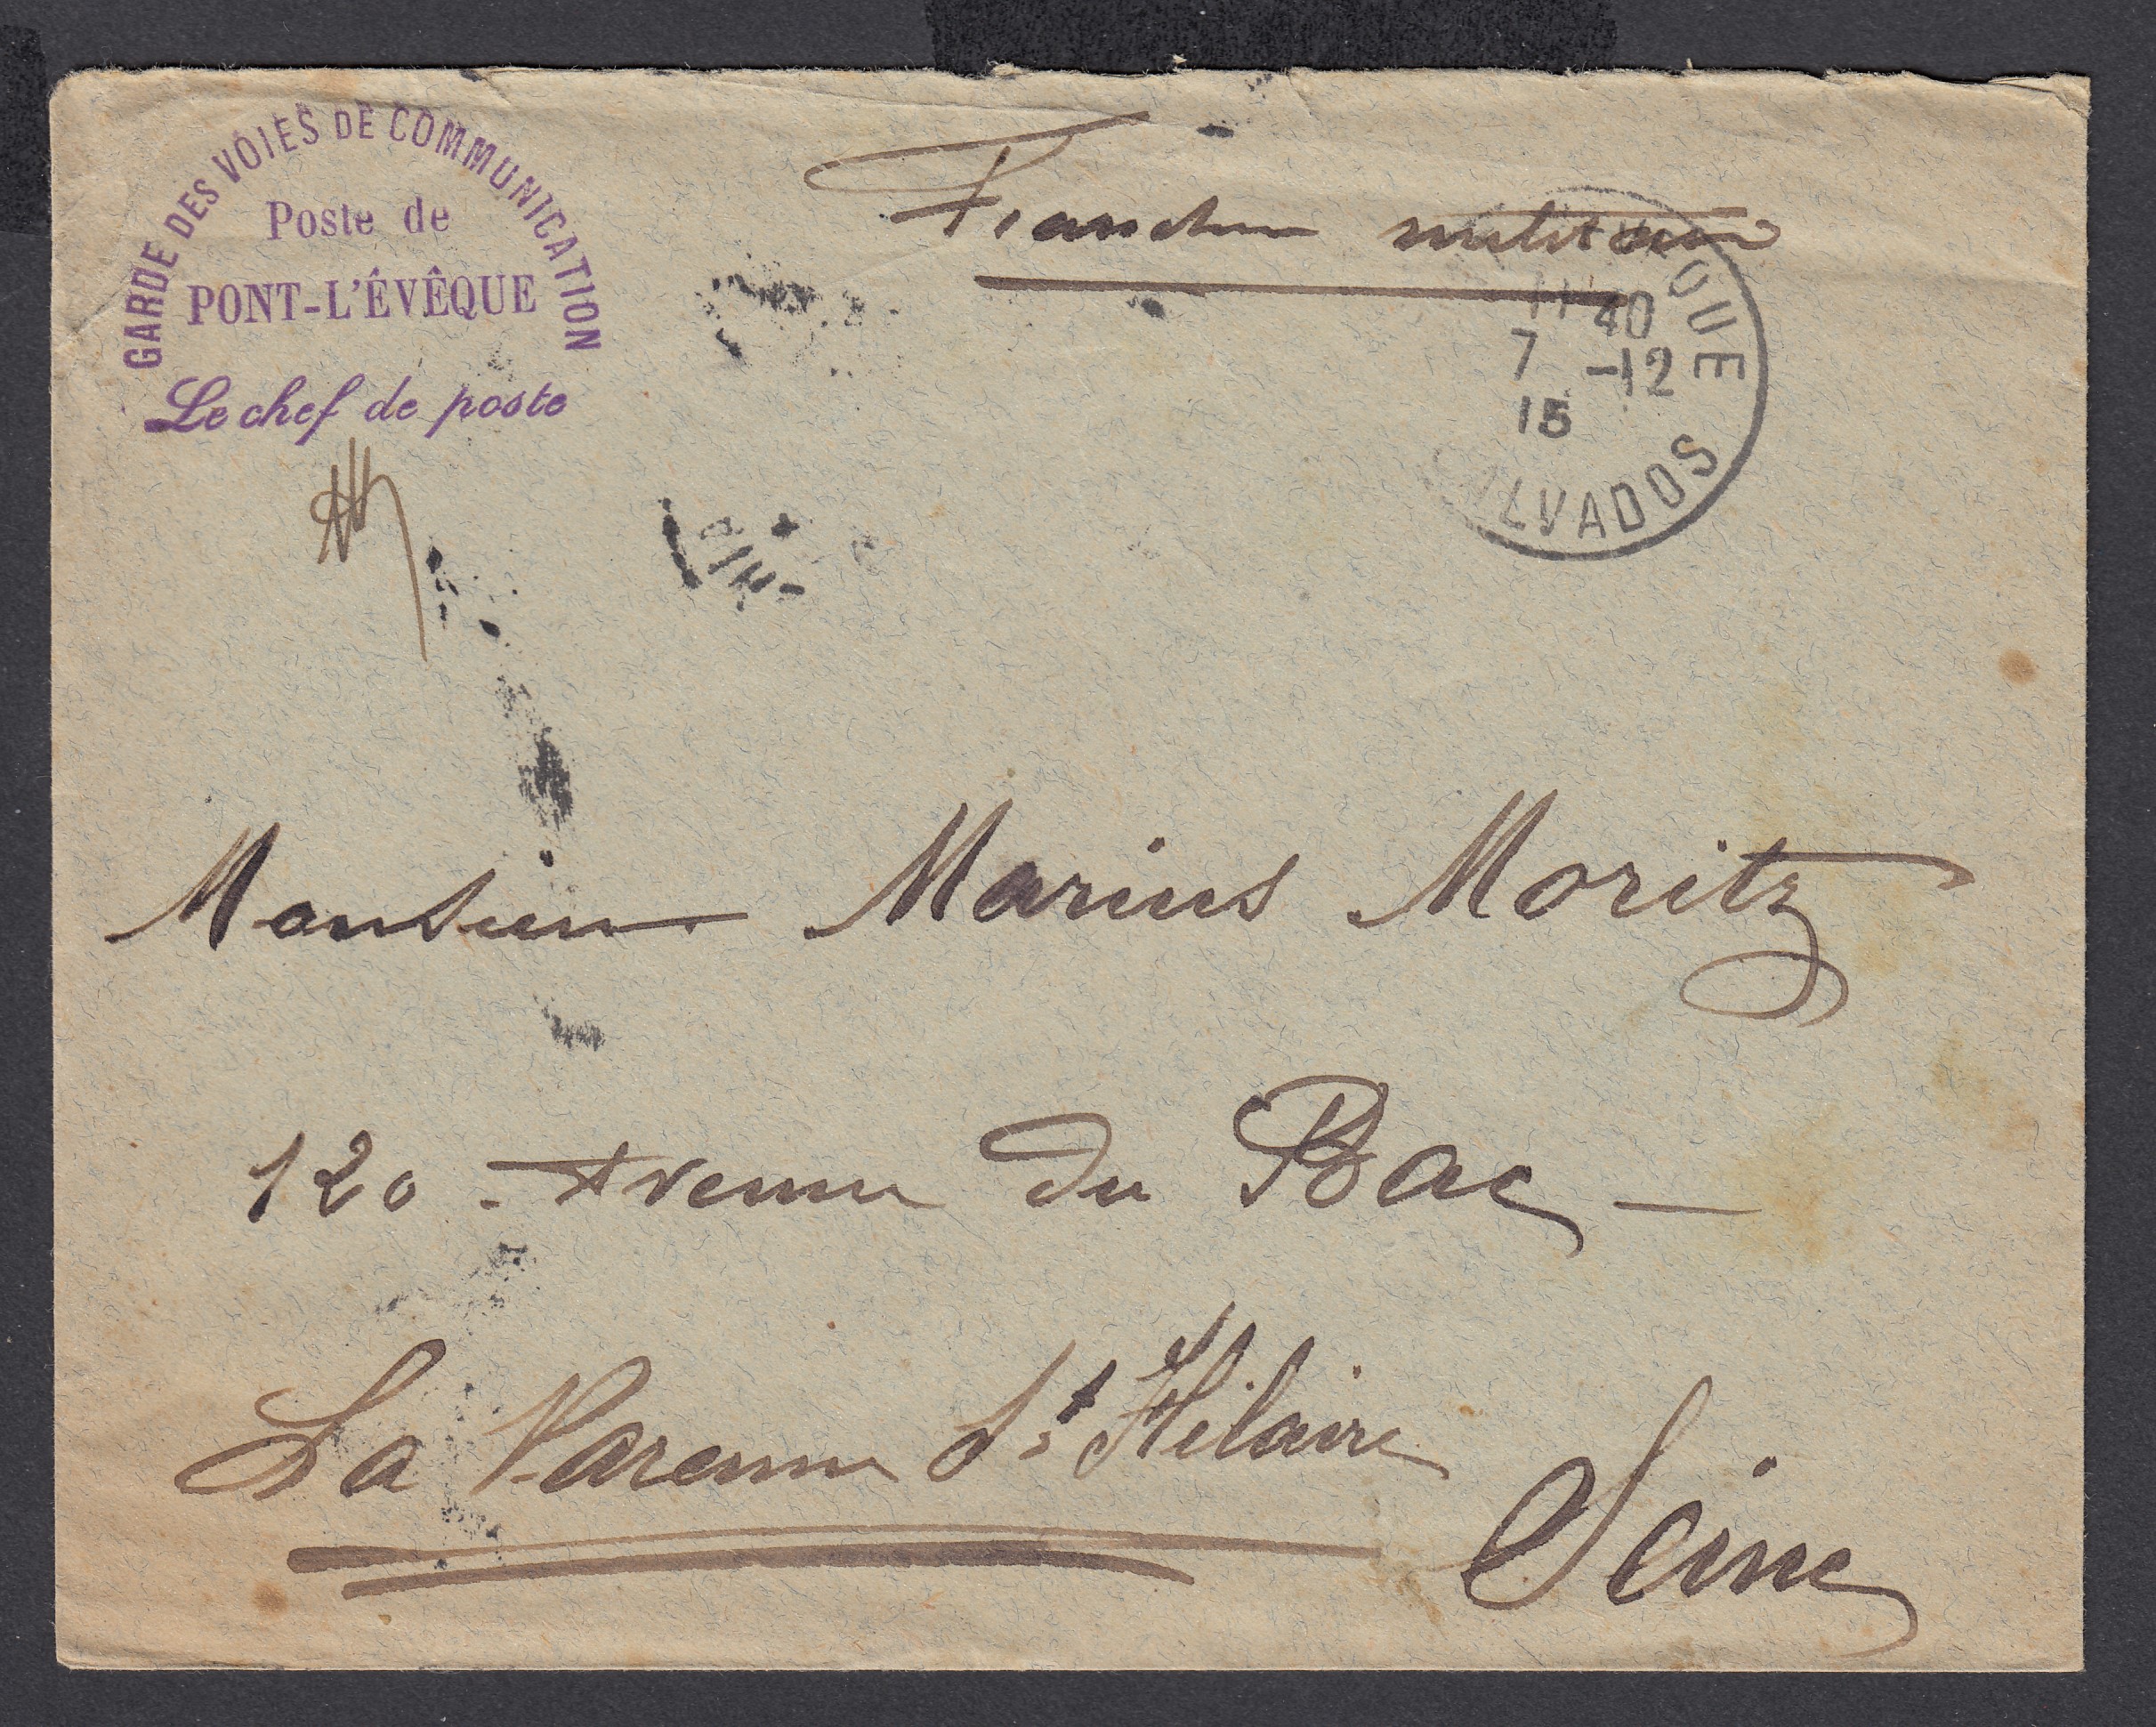 GARDE DES VOIES DE COMMUNICATION
Poste de
PONT-L'ÉVÊQUE
Le chef de poste
Franchise militaire
QUE
11 40
7 -12
15
ALVADOS
Monsieur Marius Moritz
120 - Avenue du Bac -
La Varenne St Hilaire
Seine